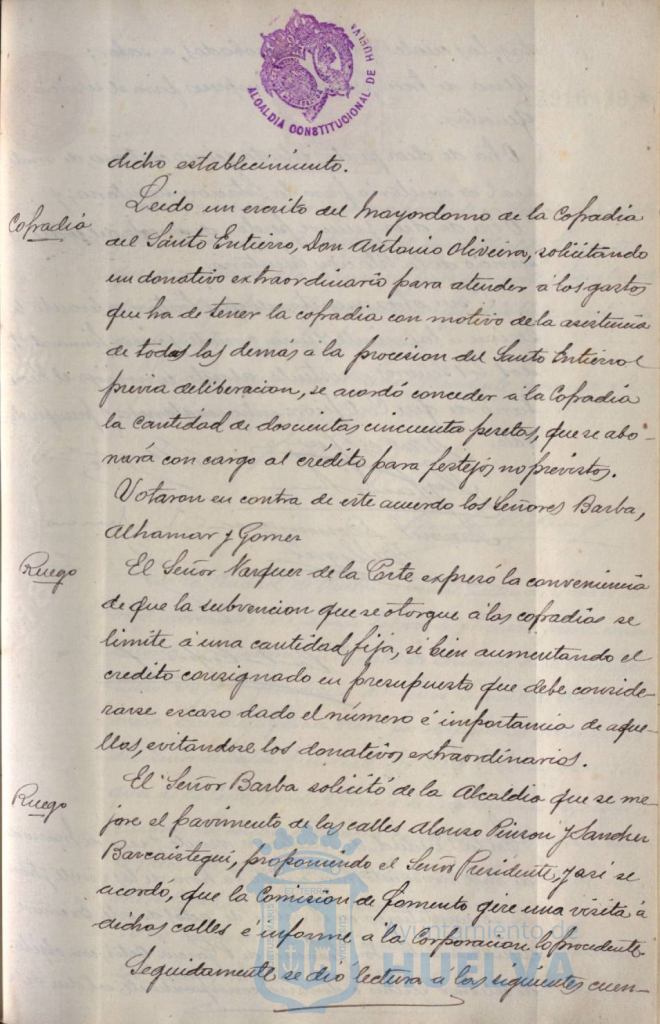 ALCALDIA CONSTITUCIONAL DE HUELVA
dicho establecimiento.
Cofradia
Leido un escrito del Mayordomo de la Cofradia
del Santo Entierro, Don Antonio Oliveira, solicitando
un donativo extraordinario para atender á los gastos
que ha de tener la cofradia con motivo de la asistencia
de todas las demás á la procesion del Santo Entierro
previa deliberacion, se acordó conceder á la Cofradia
la cantidad de doscientas cincuenta pesetas, que se abo-
nará con cargo al crédito para festejos no previstos.
Votaron en contra de este acuerdo los Señores Barba,
Alhamar y Gomez
Ruego
El Señor Vazquez de la Corte expresó la conveniencia
de que la subvencion que se otorgue á las cofradias se
limite á una cantidad fija, si bien aumentando el
credito consignado en presupuesto que debe conside-
rarse escaso dado el número é importancia de aque-
llas, evitandose los donativos extraordinarios.
Ruego
El Señor Barba solicitó de la Alcaldia que se me-
jore el pavimento de las calles Alonso Pinzon y Sanchez
Barcaiztegui, proponiendo el Señor Presidente, y asi se
acordó, que la Comision de Fomento gire una visita á
dichas calles é informe á la Corporacion lo procedente
Seguidamente se dió lectura á las siguientes cuen-
Ayuntamiento de
HUELVA